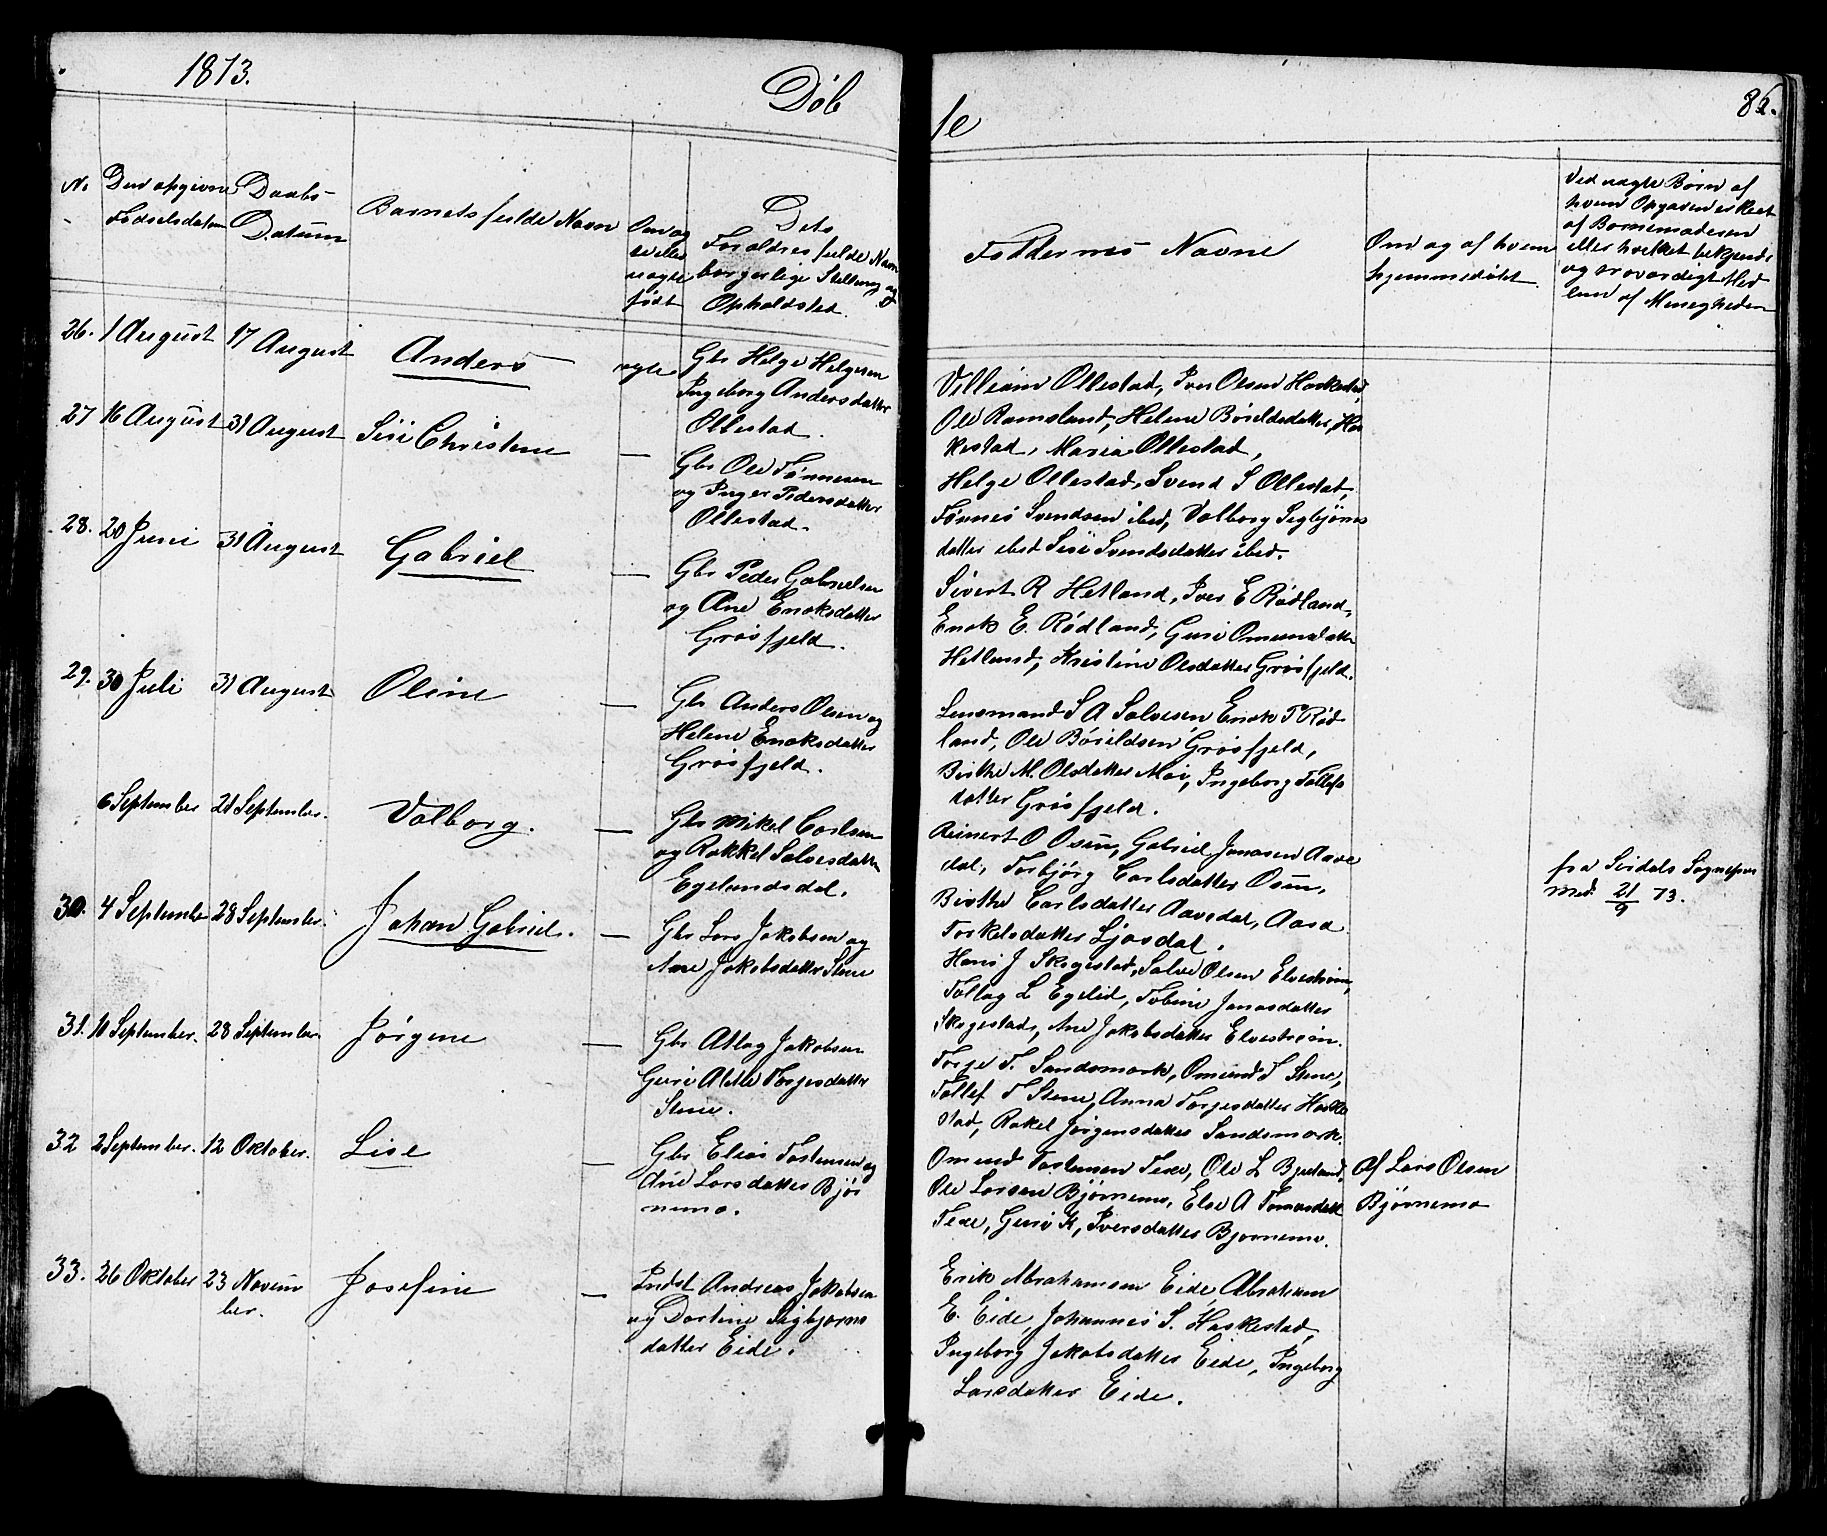 1873.
Døb
te
86.
No
Den opgivne
Fødselsdatum
Daabs-
Datum
Barnets fulde Navn
Om æg
te eller
uægte
født
Dets
Forældres fulde Navn
borgerlige Stilling og
Opholdsted.
Faddernes Navne
Om og af hvem
hjemmedøbt
Ved uægte Børn af
hvem Opgaven er skeet
af Barnemoderen
eller hvilket bekjendt
og troværdigt Med
lem af Menigheden
26. 1 August 17 August Anders ægte
Gbr Helge Helgesen
Ingeborg Andersdatter
Ollestad.
Villiam Ollestad, Iver Olsen Haskestad,
Ole Ramsland, Helene Bórildsdatter Ha
kestad, Maria Ollestad,
27 16 August 31 August Siri Christene —
Gbr Ole Tønnesen
og Inger Pedersdatter
Ollestad.
Helge Ollestad, Svend S Ollestad,
Tønnes Svendsen ibid, Valborg Sigbjørns
datter ibid Siri Svendsdatter ibid.
28. 20 Juni 31 August Gabriel —
Gbr Peder Gabrielsen
og Ane Enoksdatter
Grøsfjeld.
Sivert R Hetland, Iver E Rødland,
Enok E. Rødland, Guri Omundsdatter
Hetland, Kristine Olsdatter Grøsfjeld.
29. 30 Juli 31 August Oline —
Gbr Anders Olsen og
Helene Enoksdatter
Grøsfjeld.
Lensmand S A Salvesen Enok T Rød
land, Ole Bórildsen Grøsfjeld,
Birthe M. Olsdatter Moi, Ingeborg Tollefs
datter Grøsfjeld.
6 September 21 September. Valborg. —
Gbr Mikel Carlsen
og Rakkel Salvesdatter
Egelandsdal.
Reinert O Osen, Gabriel Jonasen Aave
dal, Torbjørg Carlsdatter Osen,
Birthe Carlsdatter Aavedal, Aasa
Torkelsdatter Ljosdal.
fra Sirdals Sognepræst
med. 21/9 73.
30. 4 September 28 September. Johan Gabriel. —
Gbr Lars Jakobsen og
Ane Jakobsdatter Stene
Hans J Skogestad, Salve Olsen Elvestrøm,
Tollag L Egelid, Tobine Jonasdatter
Skogestad, Ane Jakobsdatter Elvestrøm.
31. 11 September. 28 September. Jørgine —
Gbr Atlag Jakobsen
Guri Alette Torgesdatter
Stene.
Torge T. Sandsmark, Omund T Stene,
Tollef T Stene, Anna Torgesdatter Haske
stad, Rakel Jørgensdatter Sandsmark.
32 2 September. 12 Oktober. Lise —
Gbr Elias Tostensen og
Ane Larsdatter Bjør
nemo.
Omund Tostensen Texe, Ole L Bjelland,
Ole Larsen Bjørnemo, Else A Tomasdatt
Texe, Guri K, Iversdatter Bjørnemo.
Af Lars Olsen
Bjørnemo
33. 26 Oktober 23 Novem
ber. Josefine —
Indst Andreas Jakobsen
og Dortine Sigbjørns
datter Eide.
Erik Abrahamsen Eide, Abraham
E. Eide, Johannes S. Haskestad,
Ingeborg Jakobsdatter Eide, Ingeborg
Larsdatter Eide.